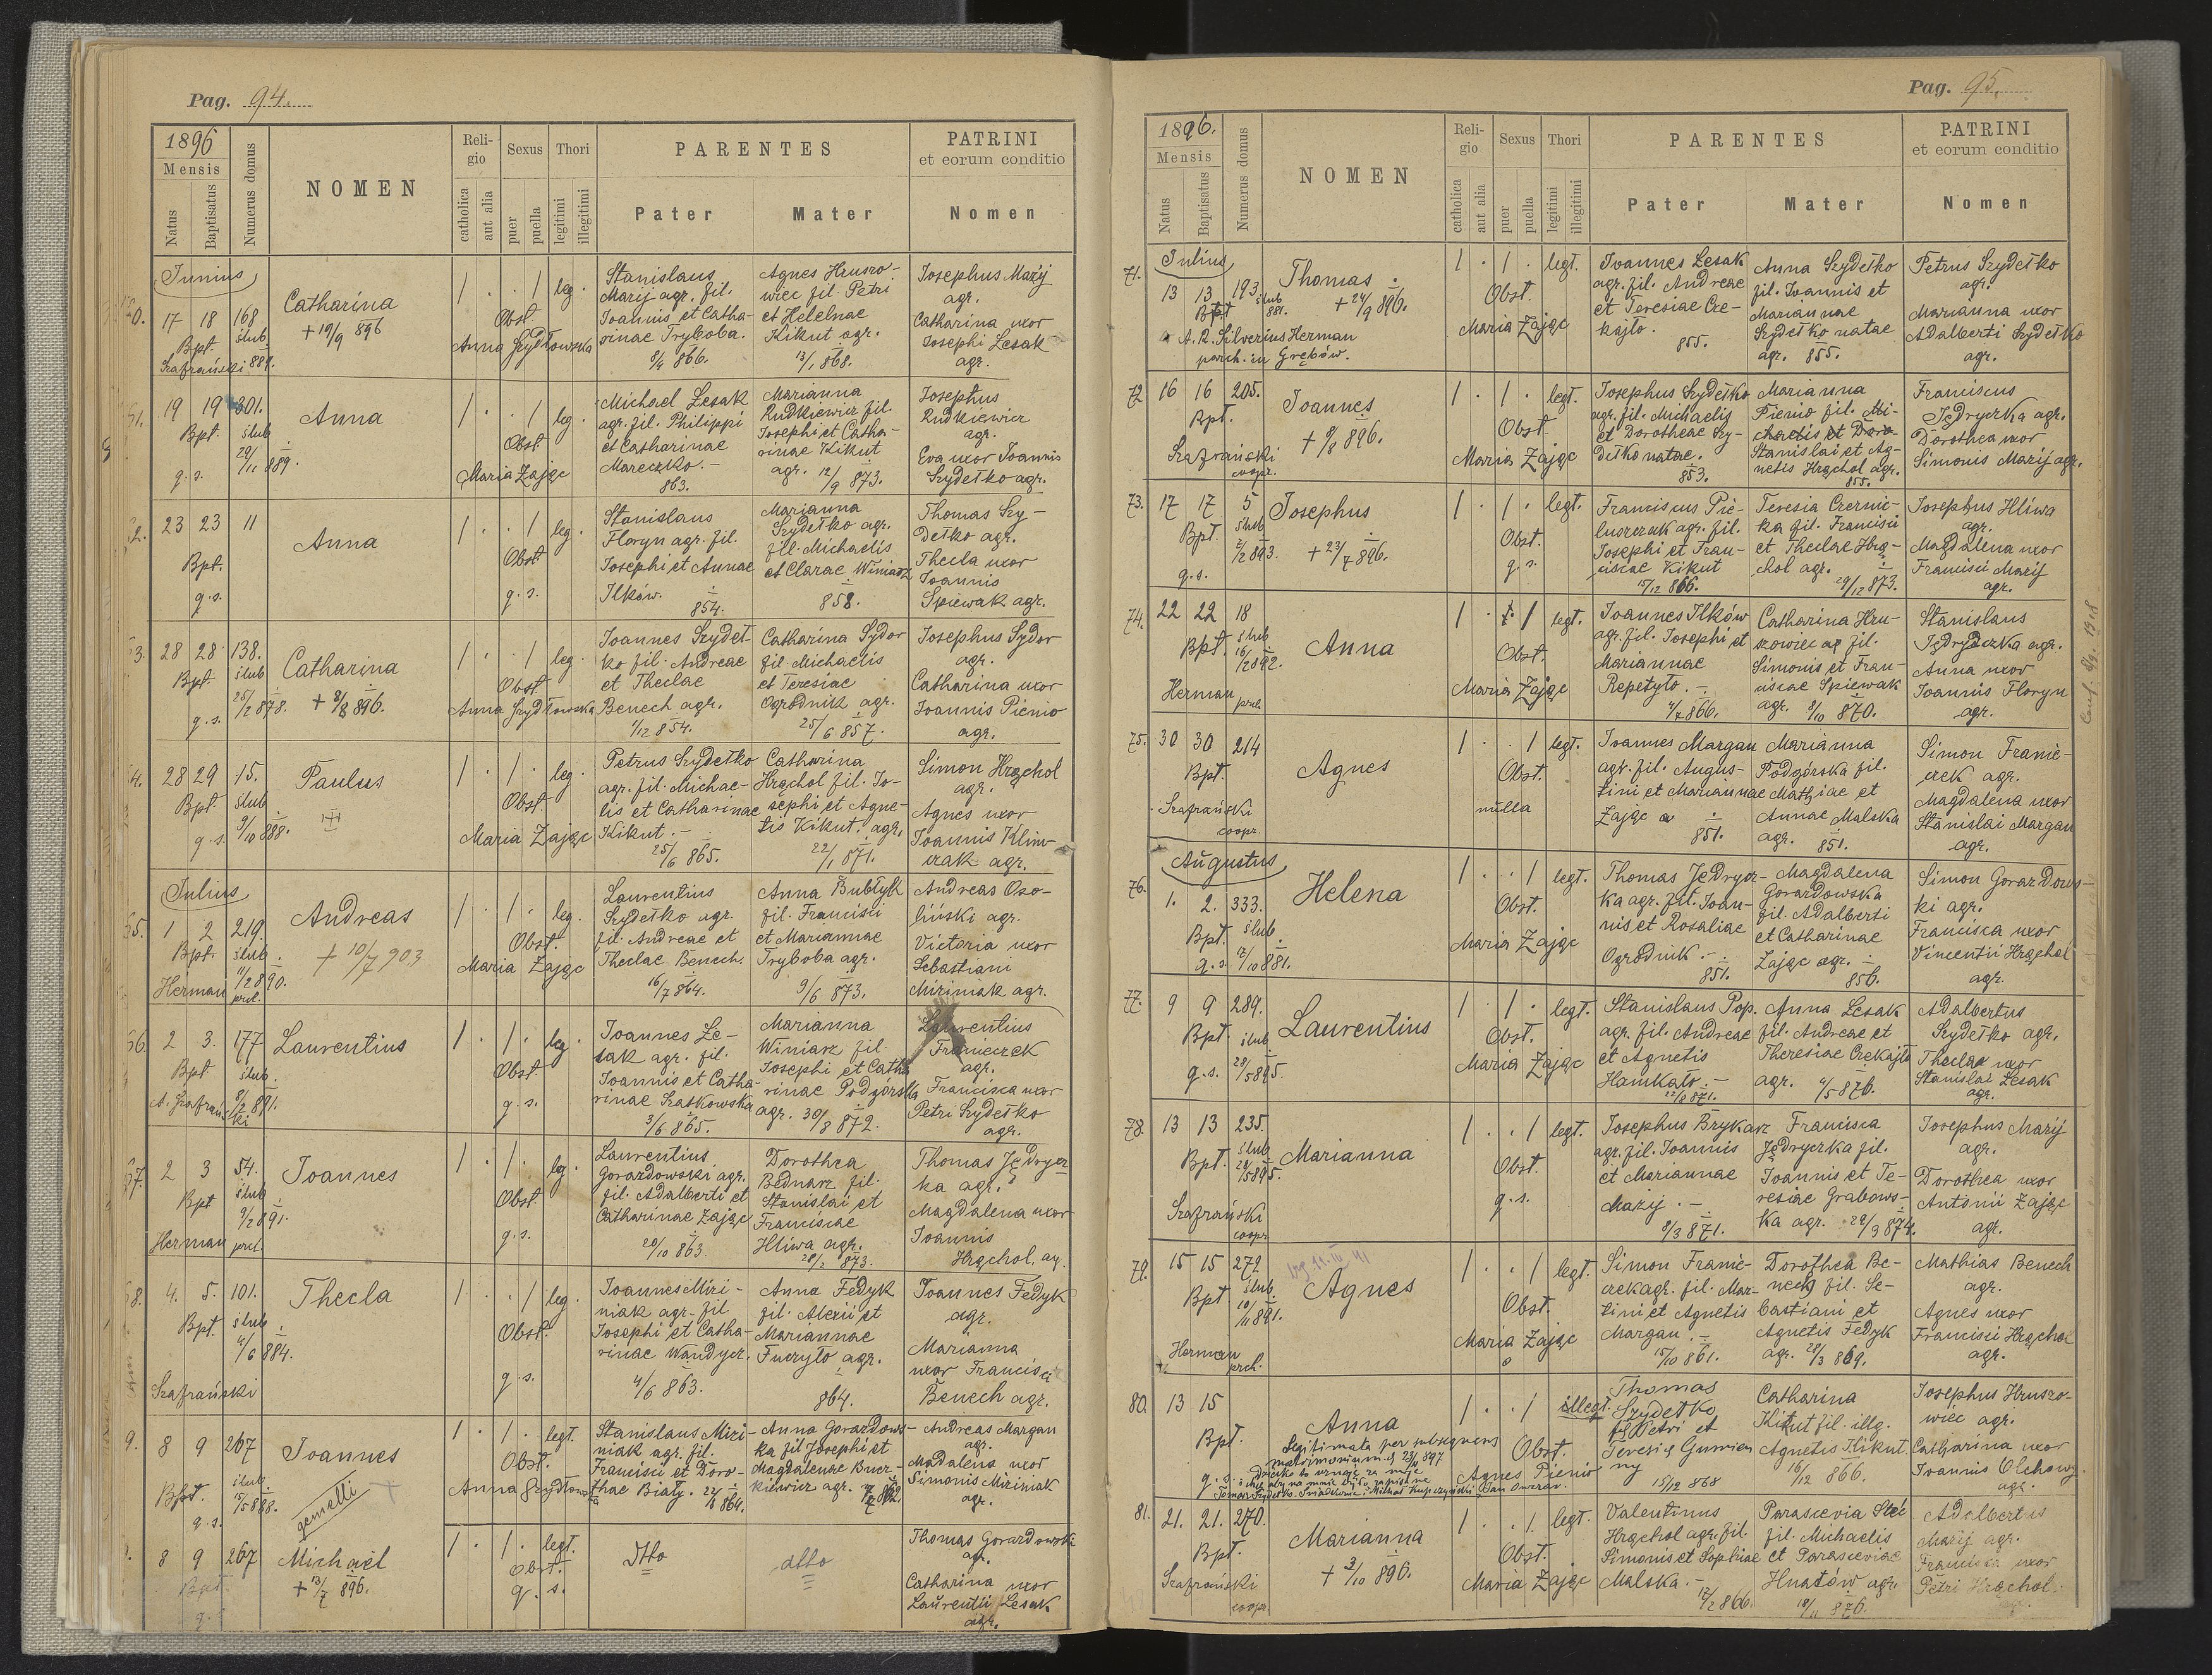 Pag. 94.
1896
Mensis
Natus
Baptisatus
Numerus domus
NOMEN
Religio
catholica
aut alia
Sexus
puer
puella
Thori
legitimi
illegitimi
PARENTES
Pater
Mater
PATRINI
et eorum conditio
Nomen
Junius
17 18 168
Bpt. ślub
Szafrański 889.
Catharina
+ 19/9 896
1 . . 1 leg.
Obst.
Anna Szydłowska
Stanislaus
Mazij agr. fil.
Joannis et Catha-
rinae Tryboba.
8/4 866.
Agnes Hruszo-
wiec fil. Petri
et Helenae
Kikut agr.
13/1 868.
Josephus Mazij
agr.
Catharina uxor
Josephi Lesak
agr.
19 19 301.
Bpt. ślub
g. s. 889.
Anna
1 . . 1 leg.
Obst
Maria Zając
Michael Lesak
agr. fil. Philippi
et Catharinae
Mareczko. -
863.
Marianna
Rudkiewicz fil.
Josephi et Catha-
rinae Kikut
agr. 12/9 873.
Josephus
Rudkiewicz
agr.
Eva uxor Joannis
Szydełko agr.
23 23 11
Bpt.
g. s.
Anna
1 . . 1 leg.
Obst
g. s.
Stanislaus
Floryn agr. fil.
Josephi et Annae
Ilków.
854.
Marianna
Szydełko agr.
fil. Michaelis
et Clarae Winiarz
858.
Thomas Szy-
dełko agr.
Thecla uxor
Joannis
Spiewak agr.
28 28 138.
Bpt. ślub
g. s. 25/2 878.
Catharina
+ 8/8 896.
1 . . 1 leg.
Obst.
Anna Szydłowska
Joannes Szydeł-
ko fil. Andreae
et Theclae
Benech agr.
1/12 854.
Catharina Sydor
fil. Michaelis
et Teresiae
Ogrodnik agr.
25/6 857.
Josephus Sydor
agr.
Catharina uxor
Joannis Pienio
agr.
28 29 15.
Bpt. ślub
g. s. 9/10 888.
Paulus
1 . 1 . leg.
Obst.
Maria Zając
Petrus Szydełko
agr. fil. Michae-
lis et Catharinae
Kikut. -
25/6 865.
Catharina
Hrąchol fil. Jo-
sephi et Agne-
tis Kikut. agr.
22/1 871.
Simon Hrąchol
agr.
Agnes uxor
Joannis Klim-
czak agr.
Julius
1 2 219.
Bpt. ślub
Herman 11/2 890.
prob.
Andreas
+ 10/7 903
1 . 1 . leg.
Obst.
Maria Zając
Laurentius
Szydełko agr.
fil. Andreae et
Theclae Benech.
16/7 864.
Anna Bubłyk
fil. Francisci
et Mariannae
Tryboba agr.
9/6 873.
Andreas Oso-
liński agr.
Victoria uxor
Sebastiani
Miziniak agr.
2 3. 177
Bpt ślub.
A. Szafrański 8/2 891.
Laurentius
1 . 1 . leg
Obst
g. s.
Joannes Le-
sak agr. fil.
Joannis et Catha-
rinae Szatkowska
3/6 865.
Marianna
Winiarz fil.
Josephi et Catha
rinae Podgórska
agr. 30/8 872.
Laurentius
Franieczek
agr.
Francisca uxor
Petri Szydełko
agr.
2 3 54.
Bpt ślub
9/2 891.
Herman prob.
Joannes
1 . 1 . lg.
Obst
g. s.
Laurentius
Gorazdowski agr.
fil. Adalberti et
Catharinae Zając
20/10 863.
Dorothea
Bednarz fil.
Stanislai et
Franciscae
Hliwa agr.
28/2 873.
Thomas Jędrycz
ka agr.
Magdalena uxor
Joannis
Hrąchol. ag.
4. 5. 101.
Bpt. ślub
4/6 884.
Szafrański
Thecla
1 . . 1 leg.
Obst.
g. s.
Joannes Mizi-
niak agr. fil
Josephi et Catha-
rinae Wandycz.
4/6 863.
Anna Fedyk
fil. Alexii et
Mariannae
Fuczyło agr.
864.
Joannes Fedyk
agr.
Marianna
uxor Francisci
Benech agr.
8 9 267
Bpt. ślub.
g. s. 15/5 888.
Joannes
gemelli
1 . 1 . legt.
Obst.
Anna Szydłowska
Stanislaus Mizi-
niak agr. fil.
Francisci et Doro-
thae Biały. 864.
Anna Gorazdows-
ka fil Josephi et
Magdalenae Bucz-
kiewicz agr.
Andreas Margan
agr.
Madalena uxor
Simonis Miziniak
agr.
8 9 267
Bpt
g. s.
Michaël
+ 13/7 896.
1 . 1 . legt.
Obst.
g. s.
Dtto
dtto
Thomas Gorazdowski
agr.
Catharina uxor
Laurentii Lesak
agr.
Pag. 95.
1896.
Mensis
Natus
Baptisatus
Numerus domus
NOMEN
Religio
catholica
aut alia
Sexus
puer
puella
Thori
legitimi
illegitimi
PARENTES
Pater
Mater
PATRINI
et eorum conditio
Nomen
71.
Julius
13 13 193
Bpt ślub
881.
A. R. Silverius Herman
paroch. in Grębów.
Thomas
+ 24/9 896.
1 . 1 . legt.
Obst.
Maria Zając
Joannes Lesak
agr. fil. Andreae
et Teresiae Cze-
kajło.
855.
Anna Szydełko
fil. Joannis et
Mariannae
Szydełko natae
agr. 855.
Petrus Szydełko
agr.
Marianna uxor
Adalberti Szydełko
agr.
72
16 16 205.
Bpt.
Szafrański
coopr.
Joannes
+ 8/8 896.
1 . 1 . legt.
Obst.
Maria Zając
Josephus Szydełko
agr. fil. Michaelis
et Dorotheae Szy-
dełko natae.
853.
Marianna
Pienio fil. Mi-
chaelis et Doro-
Stanislai et Ag-
netis Hrąchol agr.
855.
Franciscus
Jędryczka agr.
Dorothea uxor
Simonis Mazij agr.
73.
17 17 5
Bpt. ślub
2/2 893.
g. s.
Josephus
+ 23/7 896.
1 . 1 . legt.
Obst.
g. s.
Franciscus Pie-
luszczak agr. fil.
Josephi et Fran-
ciscae Kikut
15/12 866.
Teresia Czernic-
ka fil. Francisci
et Theclae Hrą-
chol agr. 29/12 873.
Josephus Hliwa
agr.
Magdalena uxor
Francisci Mazij
agr.
74.
22 22 18
Bpt. ślub
16/2 892.
Herman prob.
Anna
1 . 1 legt.
Obst.
Maria Zając
Joannes Ilków
agr. fil. Josephi et
Mariannae
Repetyło. -
4/7 866.
Catharina Hru-
szowiec fil.
Simonis et Fran-
ciscae Spiewak
agr. 8/10 870.
Stanislaus
Jędryczka agr.
Anna uxor
Joannis Floryn
agr.
75.
30 30 214
Bpt.
Szafrański
coopr.
Agnes
1 . . 1 legt.
Obst.
nulla
Joannes Margan
agr. fil. Augus-
tini et Mariannae
Zając
851.
Marianna
Podgórska fil.
Mathiae et
Annae Malska
agr. 851.
Simon Franie-
czek agr.
Magdalena uxor
Stanislai Margan
agr.
76.
Augustus
1. 2. 333.
Bpt. ślub
g. s. 12/10 881.
Helena
1 . . 1 legt.
Obst.
Maria Zając
Thomas Jędrycz-
ka agr. fil. Joan-
nis et Rosaliae
Ogrodnik. -
851.
Magdalena
Gorazdowska
fil. Adalberti
et Catharinae
Zając agr.
856.
Simon Gorazdows-
ki agr.
Francisca uxor
Vincentii Hrąchol
agr.
77.
9 9 289.
Bpt. ślub
g. s. 28/5 895.
Laurentius
1 . 1 . legt.
Obst.
Maria Zając
Stanislaus Pop.
agr. fil. Andreae
et Agnetis
Hamkało. -
12/8 871.
Anna Lesak
fil. Andreae et
Theresiae Czekajło
agr. 4/5 876.
Adalbertus
Szydełko agr.
Theclae uxor
Stanislai Lesak
agr.
78.
13 13 235.
Bpt. ślub
28/5 895.
Szafrański
coopr
Marianna
1 . . 1 legt.
Obst.
g. s.
Josephus Brykarz
agr. fil. Joannis
et Mariannae
Mazij. -
8/3 871.
Francisca
Jędryczka fil.
Joannis et Te-
resiae Grabows-
ka agr. 29/9 874.
Josephus Mazij
agr.
Dorothea uxor
Antonii Zając
agr.
79.
15 15 272
Bpt ślub
10/11 891.
Herman
prob.
Agnes
1 . . 1 legt.
Obst.
Maria Zając
Simon Franie-
czek agr. fil. Mar-
tini et Agnetis
Margan. -
15/10 861.
Dorothea Be-
nech fil. Se-
bastiani et
Agnetis Fedyk
agr. 28/3 869.
Mathias Benech
agr.
Agnes uxor
Francisci Hrąchol
agr.
80.
13 15
Bpt.
g. s.
Anna
Legitimata per subsequens
matrimonium d. 23/11 897
Dziecko to uznaję za moje
1 . . 1 illegt.
Obst.
Agnes Pienio
Thomas
Szydełko
fil Petri et
Teresię Gumien
ny 15/12 868
Catharina
Kikut fil. illg.
Agnetis Kikut.
16/12 866.
Josephus Hruszo-
wiec agr.
Catharina uxor
Joannis Olchowy
agr.
81.
21. 21. 270.
Bpt.
Szafrański
coopr.
Marianna
+ 2/10 896.
1 . . 1 legt.
Obst.
Maria Zając
Valentinus
Hrąchol agr. fil.
Simonis et Sophiae
Malska. -
12/2 866.
Parascevia Stec
fil. Michaelis
et Parasceviae
Hnatów agr.
18/11 876.
Adalbertus
Mazij agr.
Francisca uxor
Petri Hrąchol.